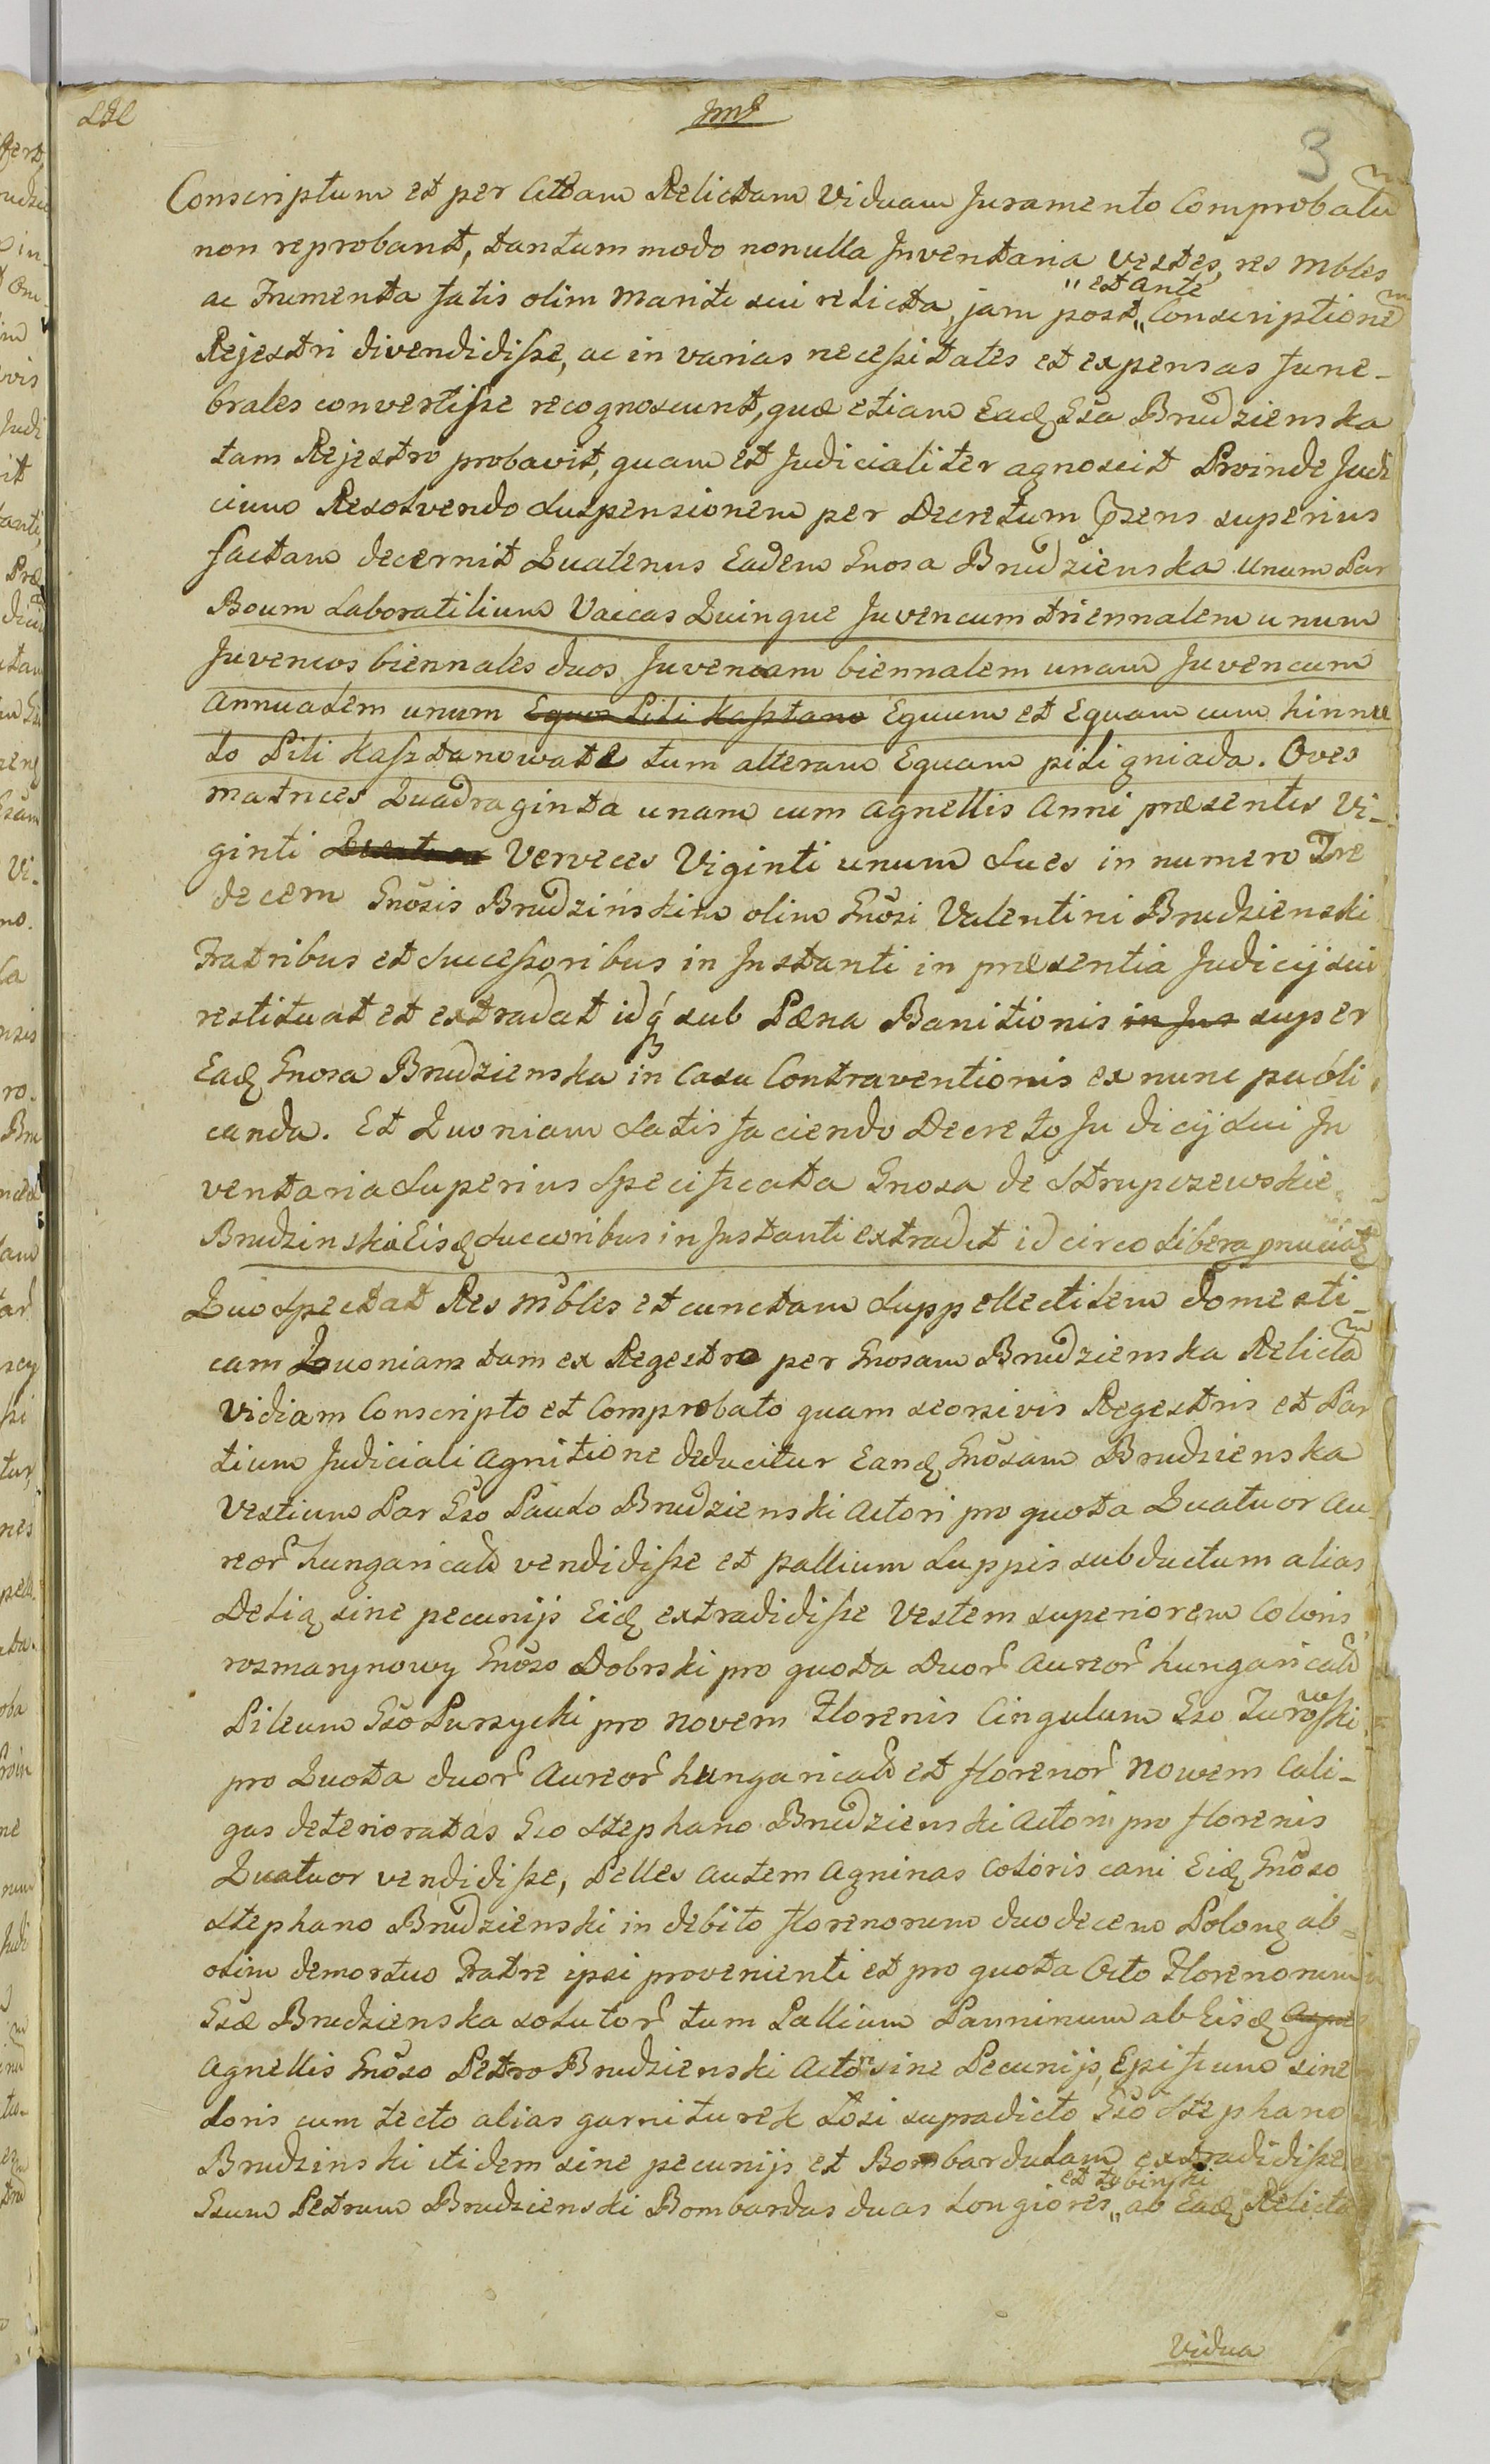 3
Conscriptum et per Cittam Relictam Viduam Juramento Comprobatum
non reprobant, tantum modo nonulla Inventaria vestes, res mbles
ac Frumenta fatis olim Mariti sui relicta, jam post „ et ante „ Conscriptionem
Rejestri divendidisse, ac in varias necessitates et expensas fune-
brales convertisse recognoscunt, quæ etiam Eadz Gsa Brudzienska
tam Rejestro probavit, quam et Judicialiter agnoscit Proinde Judi
cium Resolvendo Suspensionem per Decretum psens superius
factam decernit Quatenus Eadem Gnosa Brudzienska unum Par
Boum Laboratilium Vaccas Quinque Juvencum triennalem unum
Juvencos biennales duos Juvencam biennalem unam Juvencum
Annualem unum Equos Pili Kasztano Equum et Equam cum hinnule
to Pili Kasztanowate tum alteram Equam pili gniada. Oves
matrices Quadraginta unam cum agnellis Anni præsentis Vi-
ginti Quatuor Verveces Viginti unum Sues in numero Tre
decem Gnosis Brudzińskim olim Gnosi Valentini Brudzienski
Fratribus et Successoribus in Instanti in præsentia Judicij sui
restituat et extradat idq sub Pæna Banitionis in Jus super
Eadz Gnosa Brudzienska in Casu Contraventionis ex nunc publi
canda. Et Quoniam Satis faciendo Decreto Judicij sui In
ventaria Superius Specificata Gnosa de Strupczewskie
Brudzinska Eisdz Succoribus in Instanti extradit id circo libera pnuciatz
Quo Spectat Res mbles et cunctam Suppellectilem domesti-
cam Quoniam tam ex Regestro per Gnosam Brudzienska Relictam
Vidiam Conscripto et Comprobato quam seorsivis Regestris et Par
tium Judiciali Agnitione deducitur Eandz Gnosam Brudzienska
Vestium Par Gso Paulo Brudzienski Actori pro quota Quatuor Au
reor hungaricaliu vendidisse et pallium Luppis subductum alias
Deliz sine pecunijs Eidz extradidisse Vestem superiorem Coloris
rozmarynowy Gnoso Dobrski pro quota Duor Aureor hungaricaliu
Pileum Gso Purzycki pro Novem Florenis Cingulum Gso Turowski
pro Quota duor Aureor hungaricaliu et florenor Nowem Cali-
gas deterioratas Gso Stephano Brudzienski Actori pro florenis
Quatuor vendidisse, Pelles autem Agninas Coloris cani Eidz Gnoso
Stephano Brudzienski in debito florenorum duodecem Polonz ab
olim demortuo Fratre ipsi provenienti et pro quota Octo Florenorum
Gsæ Brudzienska solutor tum Pallium Panninum ab Eisdz Agne
Agnellis Gnoso Petro Brudzienski Actori sine Pecunijs, Epitium sine
loris cum tecto alias garniturek Łosi supradicto Gso Stephano
Brudzinski itidem sine pecunijs et Bombardulam extradidisse
Gsum Petrum Brudzienski Bombardas duas Longiores „ ab Eadz Relicta
Vidua